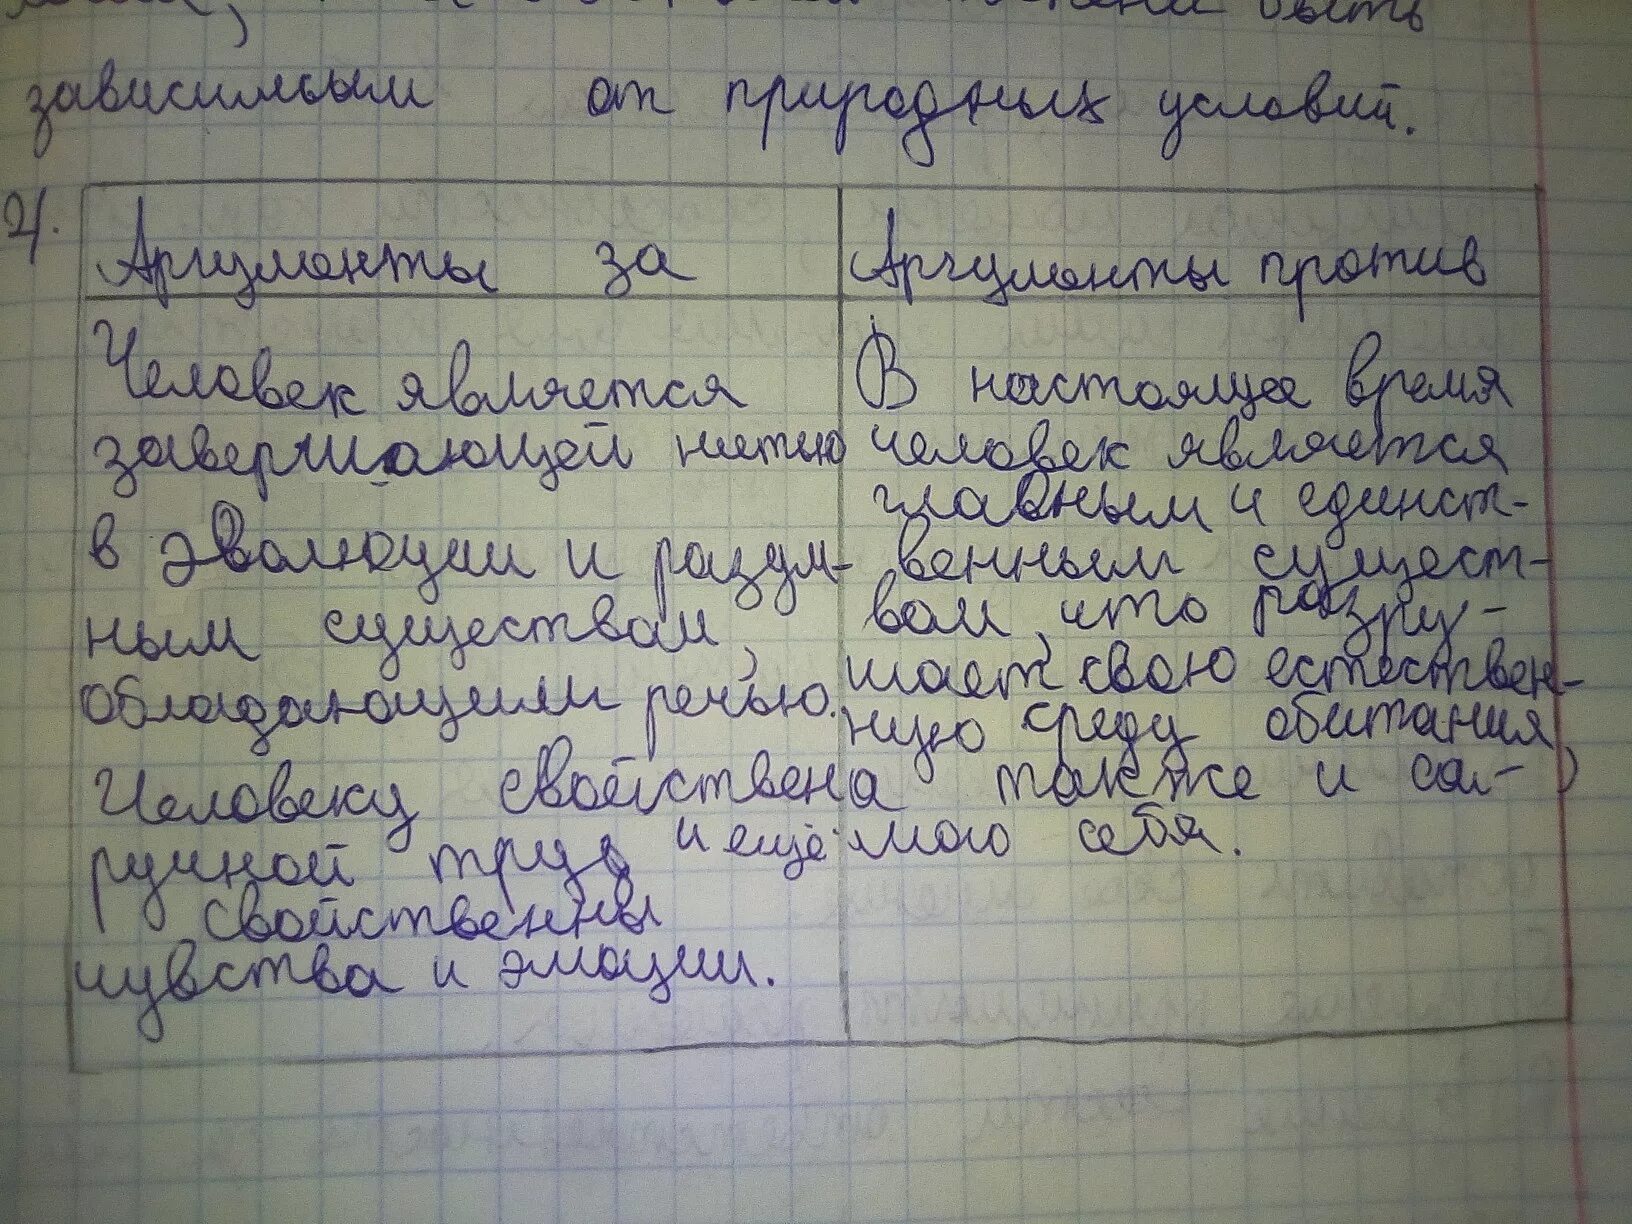 быть
зависимым от природных условий.
4.
Аргументы за
Аргументы против
Человек является
завершающей нетью
в эволюции и разум-
ным существом,
обладающим речью.
Человеку свойствен
ручной труд и ещё
свойственны
чувства и эмоции.
В настоящее время
человек является
главным и единст-
венным сущест-
вом, что разру-
шает свою естествен-
ную среду обитания,
а также и са-
мого себя.